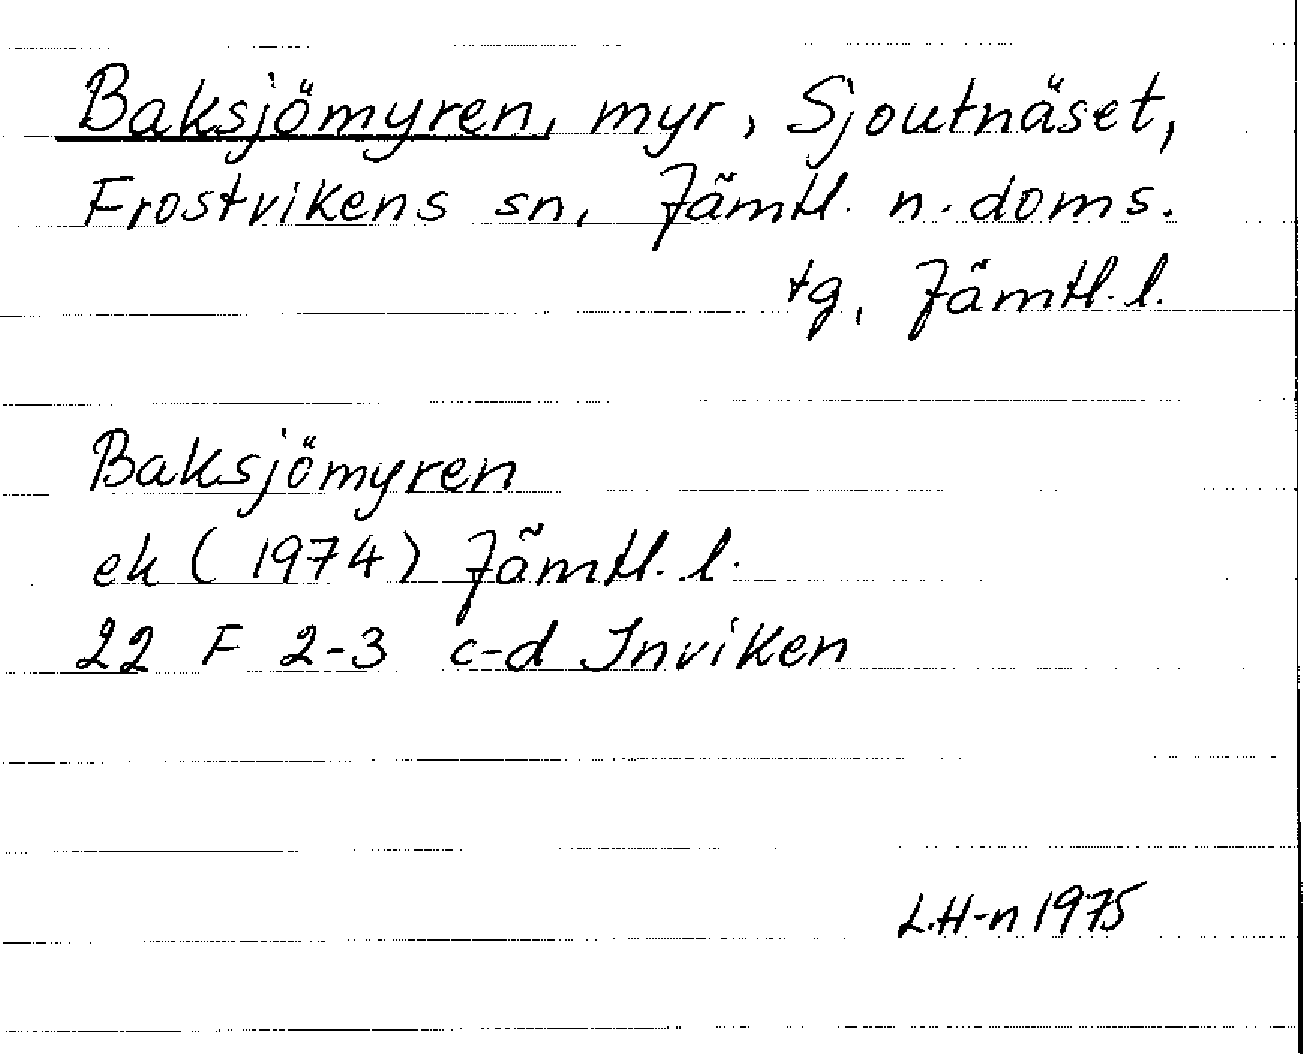 Baksjömyren, myr, Sjoutnäset,
Frostvikens sn, Jämtl. n. doms.
tg, Jämtl. l.
Baksjömyren
ek (1974) Jämtl. l.
22 F 2-3 c-d Inviken
L.H-n 1975